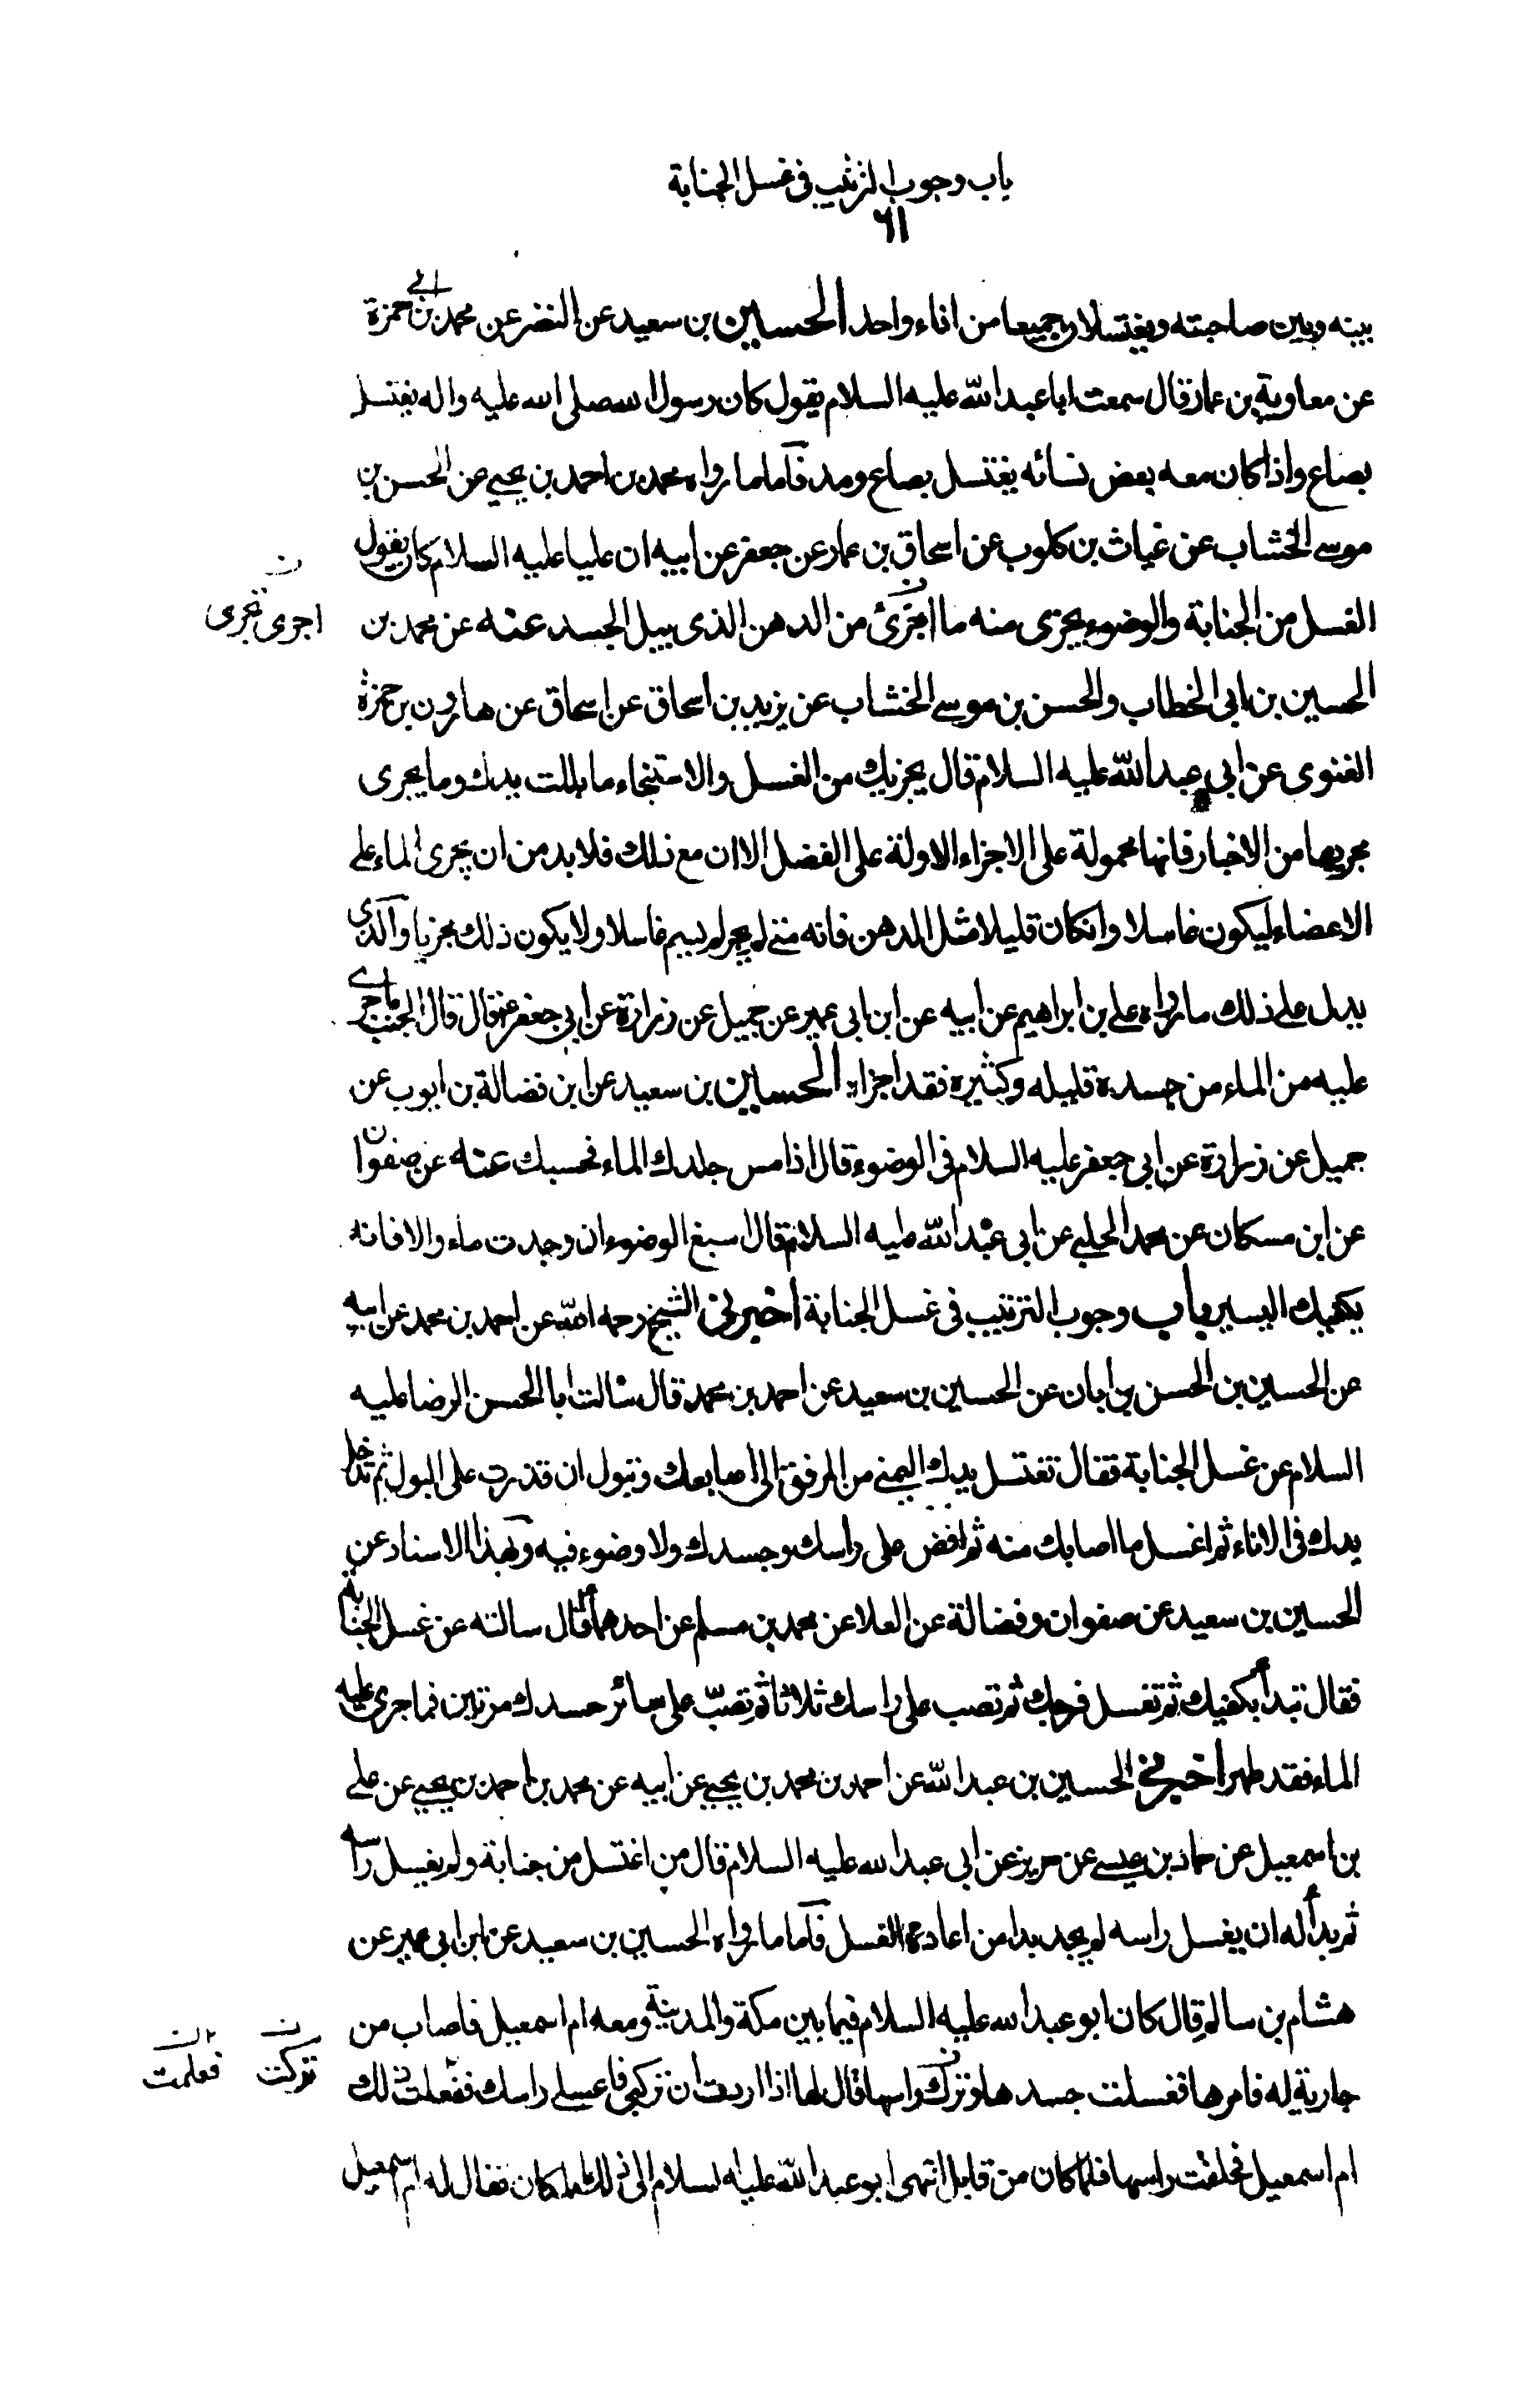 باب وجوب الترتيب فى غسل الجنابة
٦١
بينه وبين صاحبته ويغتسلان جميعا من اناء واحد الحسين بن سعيد عن النضر عن محمد بن ابى حمزة
عن معاوية بن عمار قال سمعت ابا عبد الله عليه السلام يقول كان رسول الله صلى الله عليه واله يغتسل
بصاع واذا كان معه بعض نسائه يغتسل بصاع ومد فاما ما رواه محمد بن احمد بن يحيى عن الحسن بن
موسى الخشاب عن غياث بن كلوب عن اسحاق بن عمار عن جعفر عن ابيه ان عليا عليه السلام كان يقول
الغسل من الجنابة والوضوء يجزى منه ما اجزئ من الدهن الذى يبيل الجسد عنه عن محمد بن
ن
اجزى تجرى
الحسين بن ابى الخطاب والحسن بن موسى الخشاب عن يزيد بن اسحاق عن اسحاق عن هارون بن حمزة
الغنوى عن ابى عبد الله عليه السلام قال يجزيك من الغسل والاستنجاء ما بللت يدك وما يجرى
مجريها من الاخبار فانها محمولة على الاجزاء الاولة على الفضل الا ان مع ذلك فلا بد من ان يجرى الماء على
الاعضاء ليكون غاسلا وانكان قليلا مثل الدهن فانه متى لم يجر لم يسم غاسلا ولا يكون ذلك مجزيا والذى
يدل على ذلك ما رواه على بن ابراهيم عن ابيه عن ابن ابى عمير عن جميل عن زرارة عن ابى جعفر ع قال قال الجنب ما جرى
عليه من الماء من جسده قليله وكثيره فقد اجزاه الحسين بن سعيد عن ابن فضالة بن ايوب عن
جميل عن زرارة عن ابى جعفر عليه السلام فى الوضوء قال اذا مس جلدك الماء فحسبك عنه عن صفوان
عن ابن مسكان عن محمد الحلبى عن ابى عبد الله عليه السلام قال اسبغ الوضوء ان وجدت ماء والا فانه
يكفيك اليسير باب وجوب الترتيب فى غسل الجنابة اخبرنى الشيخ رحمه الله عن احمد بن محمد عن ابيه
عن الحسين بن الحسن بن ابان عن الحسين بن سعيد عن احمد بن محمد قال سالت ابا الحسن الرضا عليه
السلام عن غسل الجنابة فقال تغتسل يدك اليمنى من المرفق الى اصابعك وتبول ان قدرت على البول ثم تدخل
يدك فى الاناء ثم اغسل ما اصابك منه ثم افض على راسك وجسدك ولا وضوء فيه وبهذا الاسناد عن
الحسين بن سعيد عن صفوان وفضالة عن العلا عن محمد بن مسلم عن احدهما قال سالته عن غسل الجنابة
فقال تبدأ بكفيك ثم تغسل فرجك ثم تصب على راسك ثلاثا ثم تصبّ على سائر جسدك مرتين فما جرى عليه
الماء فقد طهر اخبرنى الحسين بن عبد الله عن احمد بن محمد بن يحيى عن ابيه عن محمد بن احمد بن يحيى عن على
بن اسمعيل عن حماد بن عيسى عن حريز عن ابى عبد الله عليه السلام قال من اغتسل من جنابة ولم يغسل رأسه
ثم بدأ له ان يغسل راسه لم يجد بدا من اعادة الغسل فاما ما رواه الحسين بن سعيد عن ابن ابى عمير عن
هشام بن سالم قال كان ابو عبد الله عليه السلام فيما بين مكة والمدينة ومعه ام اسمعيل فاصاب من
ن
جارية له فامرها فغسلت جسدها وترك راسها قال لها اذا اردت ان تركبى فاغسلى راسك ففعلت ذلك
تركت
فعلمت
ام اسمعيل فحلقت راسها فلما كان من قابل انتهى ابو عبد الله عليه السلام الى ذلك المكان فقال له ام اسمعيل